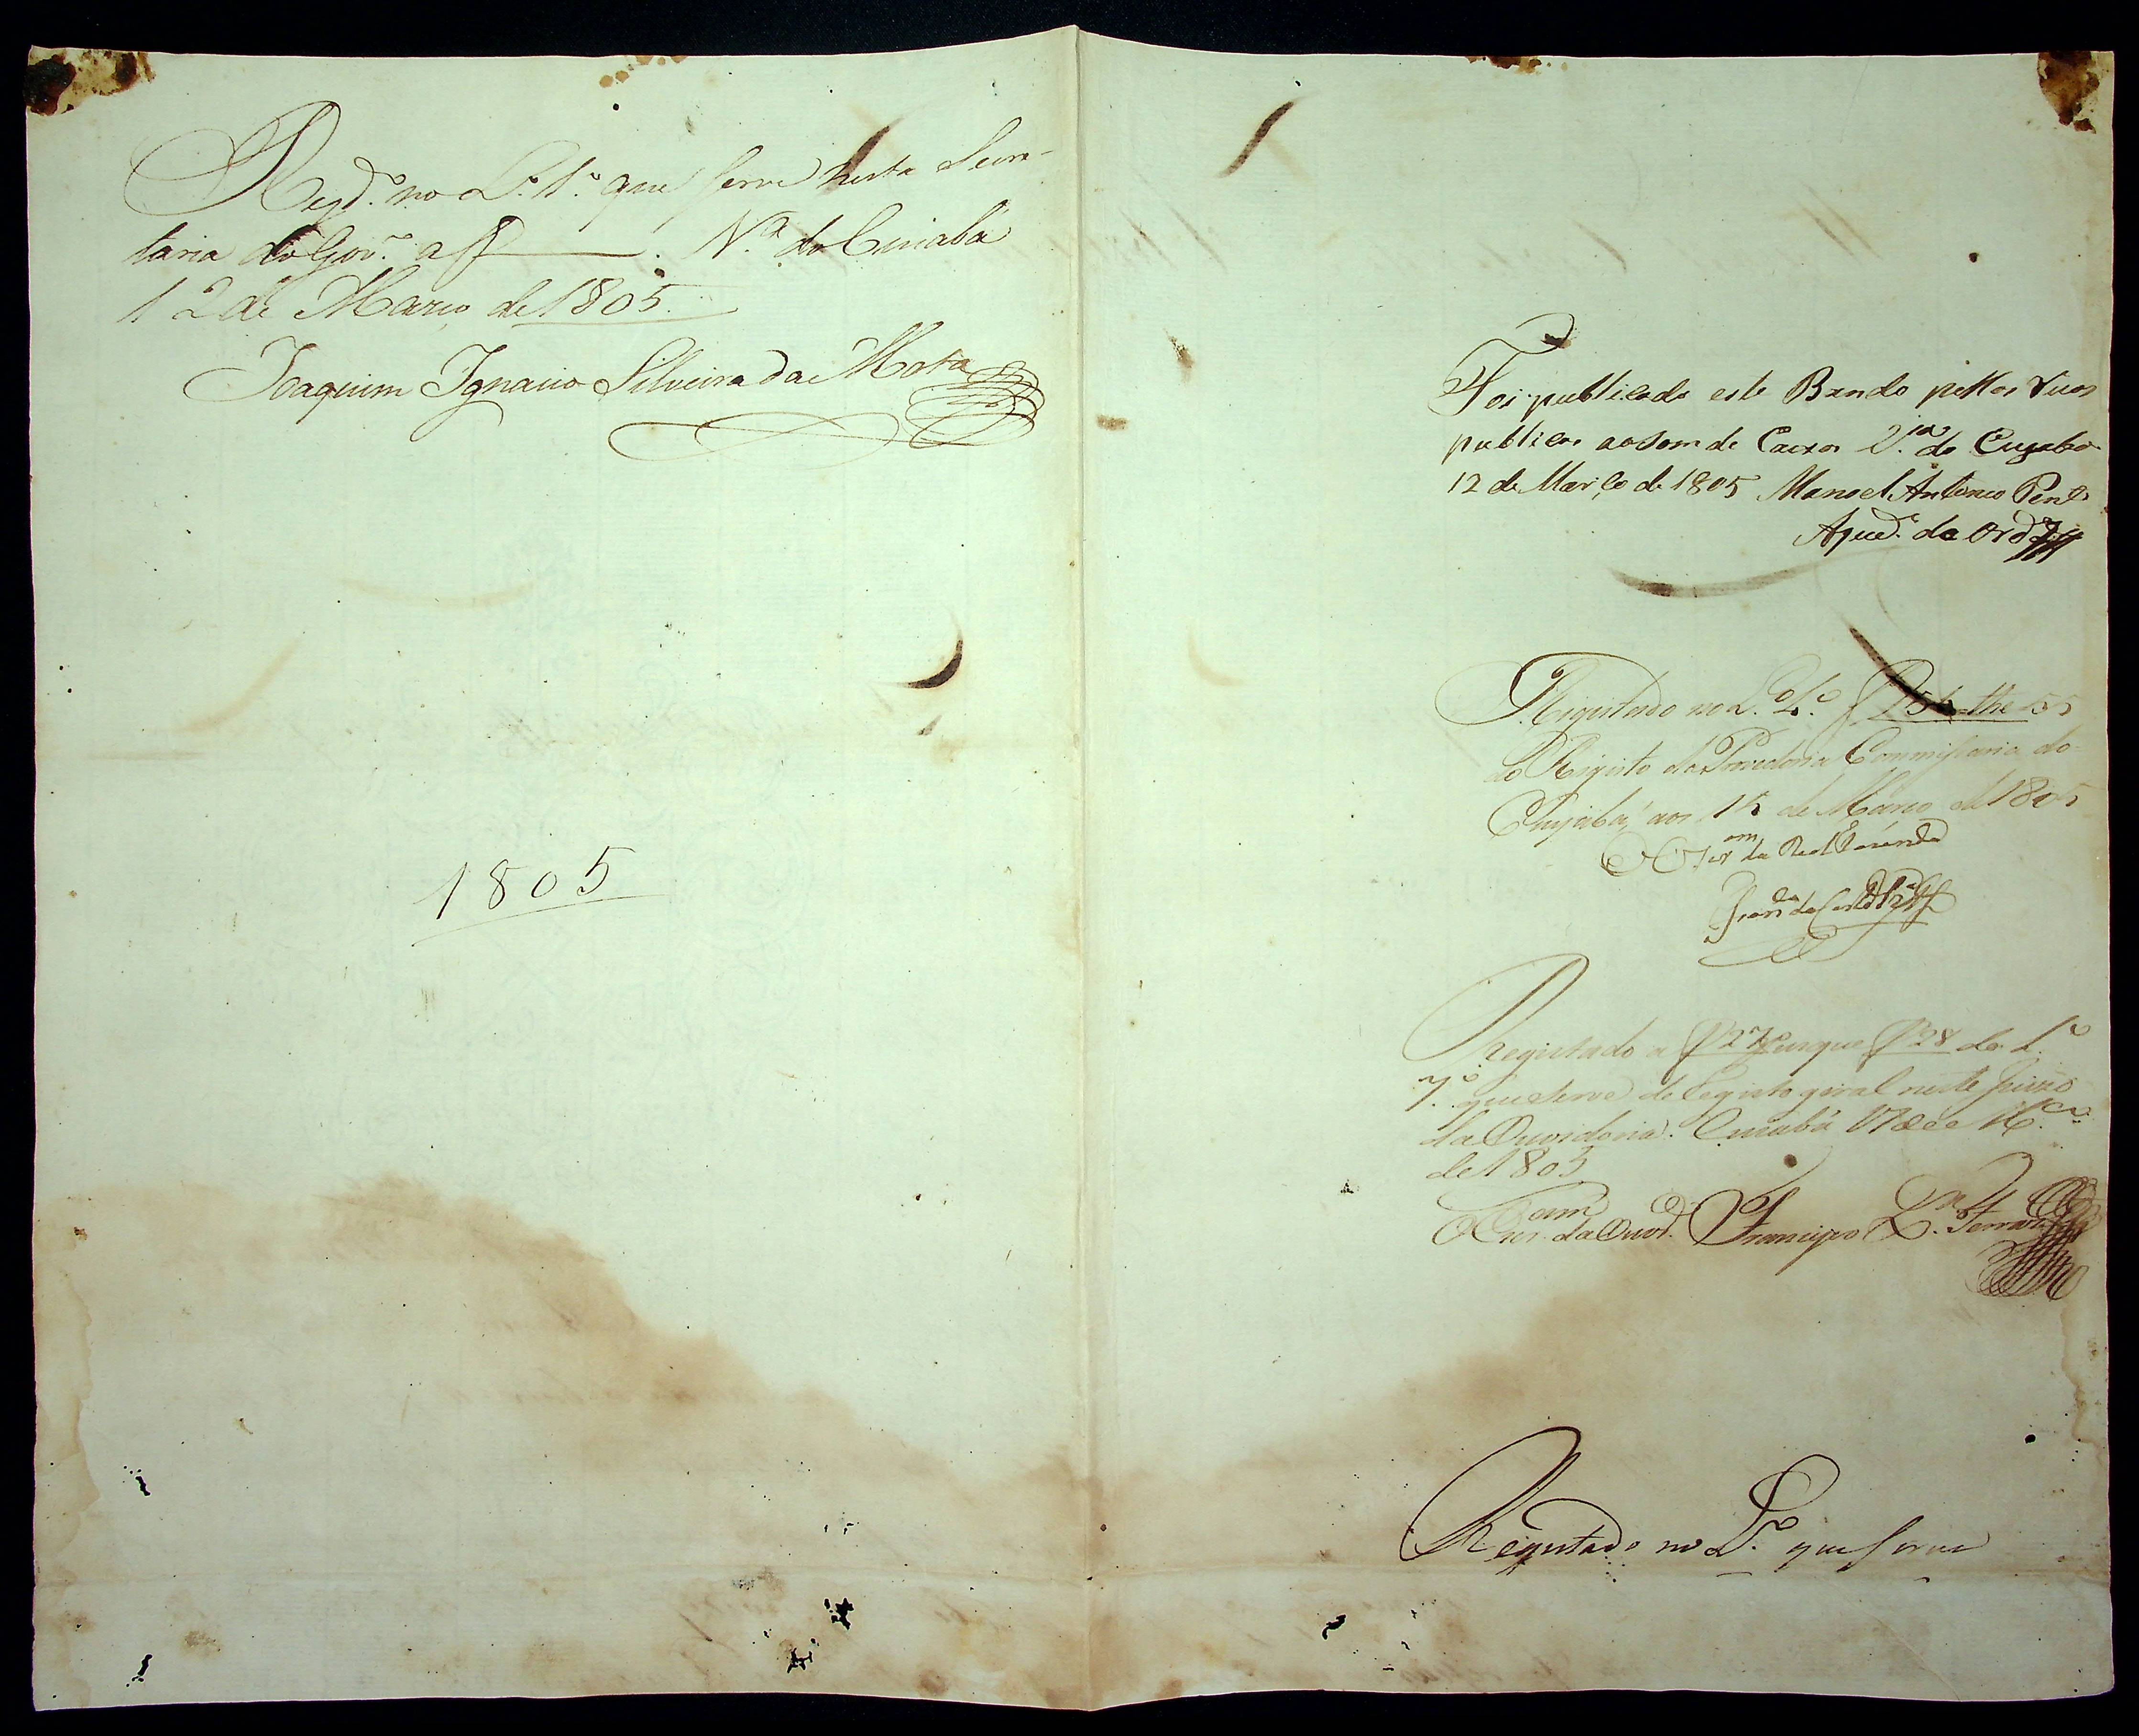 Regd.º no L.º 1.º que serve nesta Secre-
taria do Gov.º a f . V.ª do Cuiabá
12 de Março de 1805.
Joaquim Ignacio Silveira da Mota
1805
Foi publicado este Bando pellas Ruas
publicas ao som de Caixas V.ia do Cuyaba
12 de Março de 1805 Manoel Antonio
Ajud.e de Ord.s
Registado no L.º
do Registo da Provedoria Commissaria do
Cuyabá, aos de Março de 1805
da Real Fazenda
Registado a f 27 f 28 do L.º
7.º que serve de Registo geral neste Juizo
da Ouvidoria. Cuiabá 17 de M.ço
de 1805
da Ouv.ª Francisco
Registado no L.º que serve